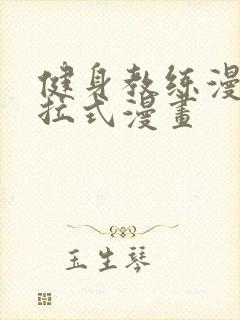 健身教练漫
拉式漫畫
玉生琴